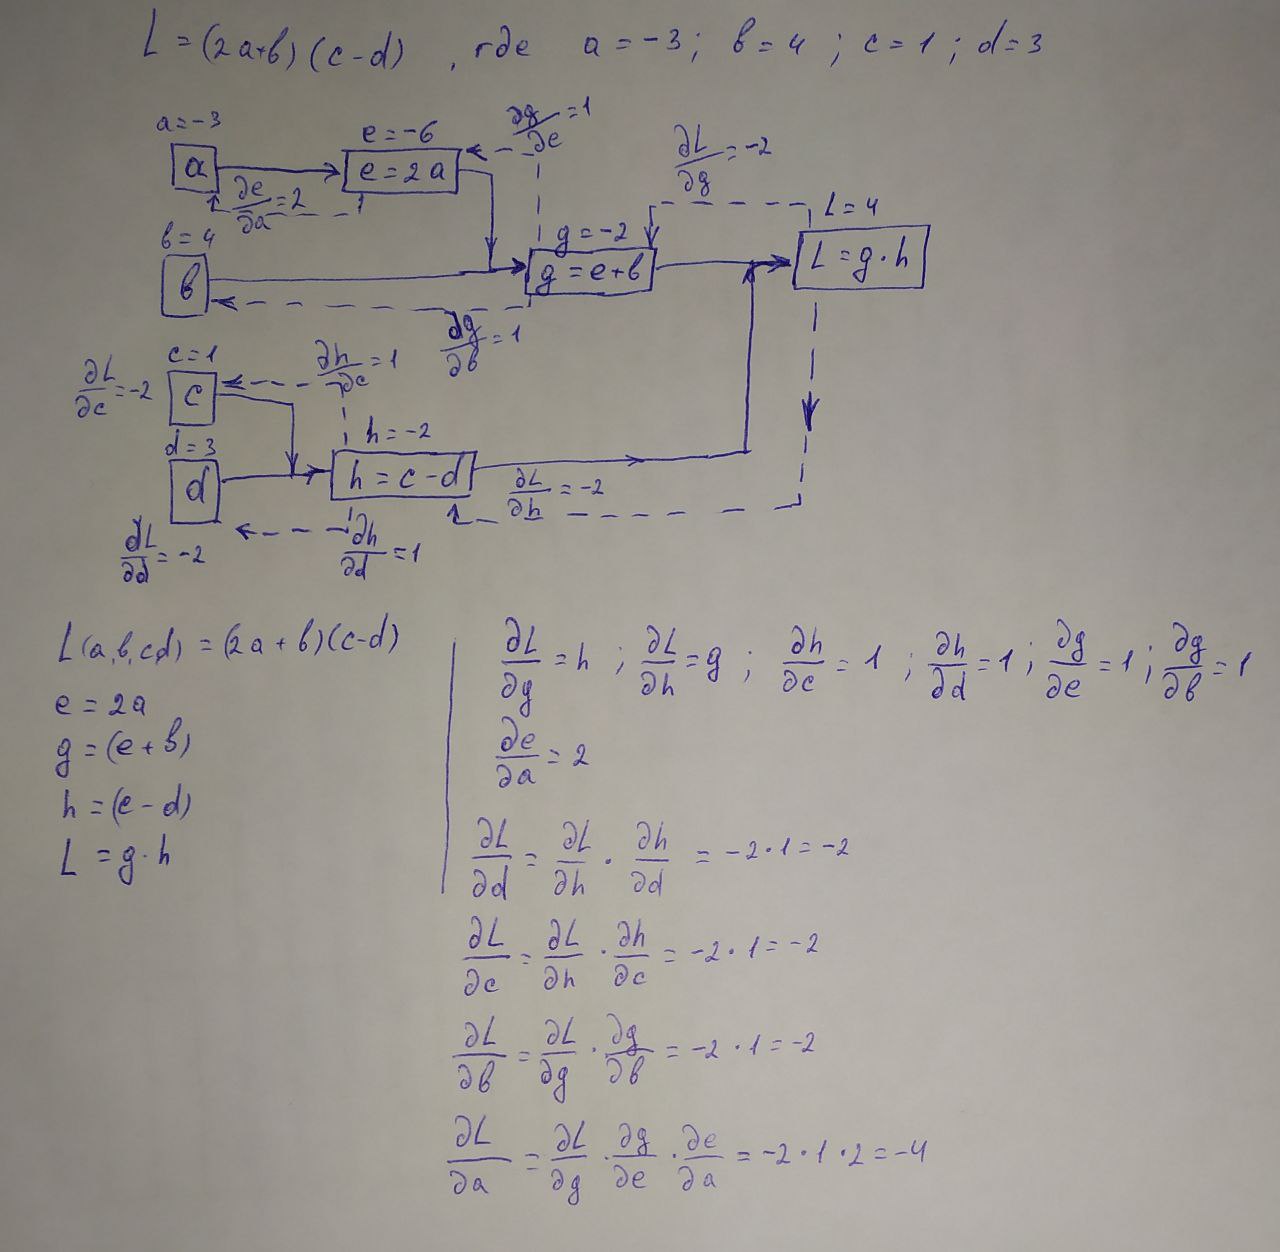 L = (2a+b) (c-d) , где a = -3; b = 4 ; c = 1 ; d = 3
a = -3
e = -6
∂g/∂e = 1
a
e = 2a
∂L/∂g = -2
∂e/∂a = 2
L = 4
b = 4
g = -2
b
g = e+b
L = g·h
∂g/∂b = 1
c = 1
∂h/∂c = 1
∂L/∂c = -2
c
d = 3
h = -2
d
h = c-d
∂L/∂h = -2
∂L/∂d = -2
∂h/∂d = 1
L(a,b,c,d) = (2a+b)(c-d)
e = 2a
g = (e+b)
h = (c-d)
L = g·h
∂L/∂g = h ; ∂L/∂h = g ; ∂h/∂c = 1 ; ∂h/∂d = 1 ; ∂g/∂e = 1 ; ∂g/∂b = 1
∂e/∂a = 2
∂L/∂d = ∂L/∂h · ∂h/∂d = -2·1 = -2
∂L/∂c = ∂L/∂h · ∂h/∂c = -2·1 = -2
∂L/∂b = ∂L/∂g · ∂g/∂b = -2·1 = -2
∂L/∂a = ∂L/∂g · ∂g/∂e · ∂e/∂a = -2·1·2 = -4